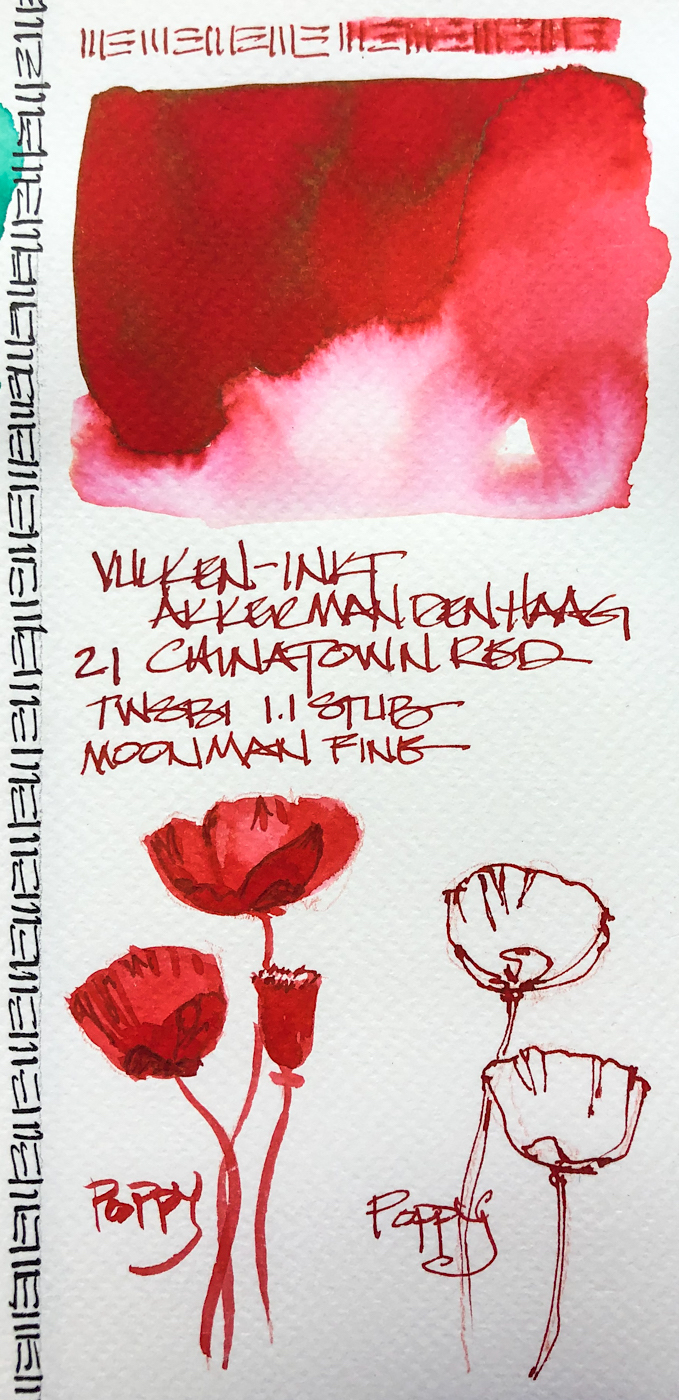 VULKEN-INKT
AKKERMAN DEN HAAG
21 CHINATOWN RED
TWSBI 1.1 STUB
MOONMAN FINE
POPPY
Poppy